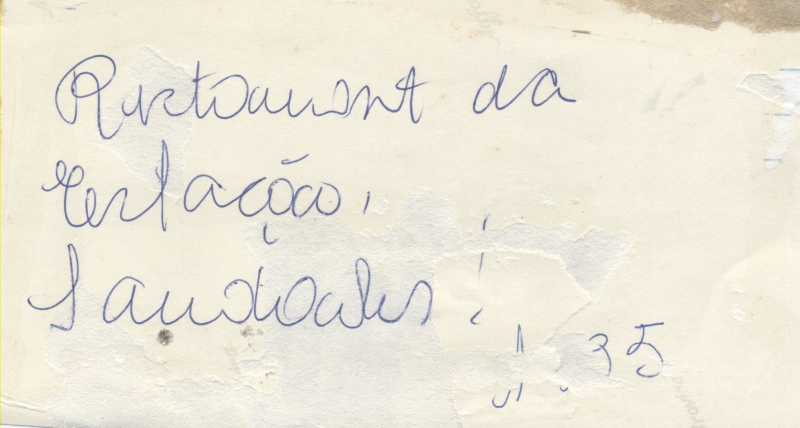 Restaurant da
Estação,
Saudades!
1.35